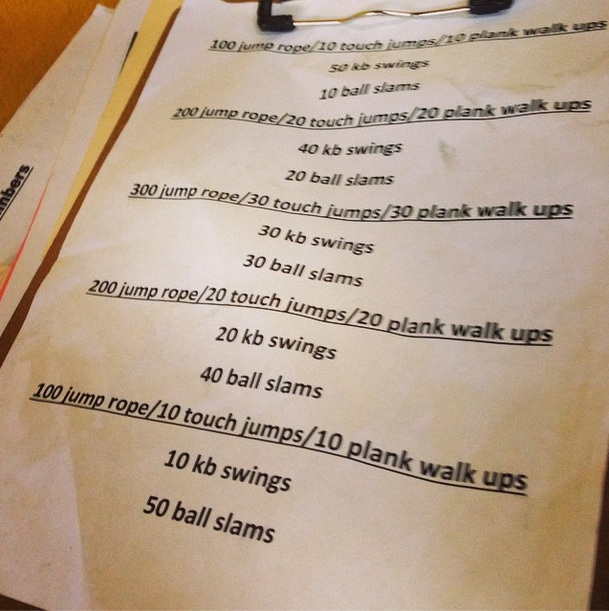 100 jump rope/10 touch jumps/10 plank walk ups
50 kb swings
10 ball slams
200 jump rope/20 touch jumps/20 plank walk ups
40 kb swings
20 ball slams
300 jump rope/30 touch jumps/30 plank walk ups
30 kb swings
30 ball slams
200 jump rope/20 touch jumps/20 plank walk ups
20 kb swings
40 ball slams
100 jump rope/10 touch jumps/10 plank walk ups
10 kb swings
50 ball slams